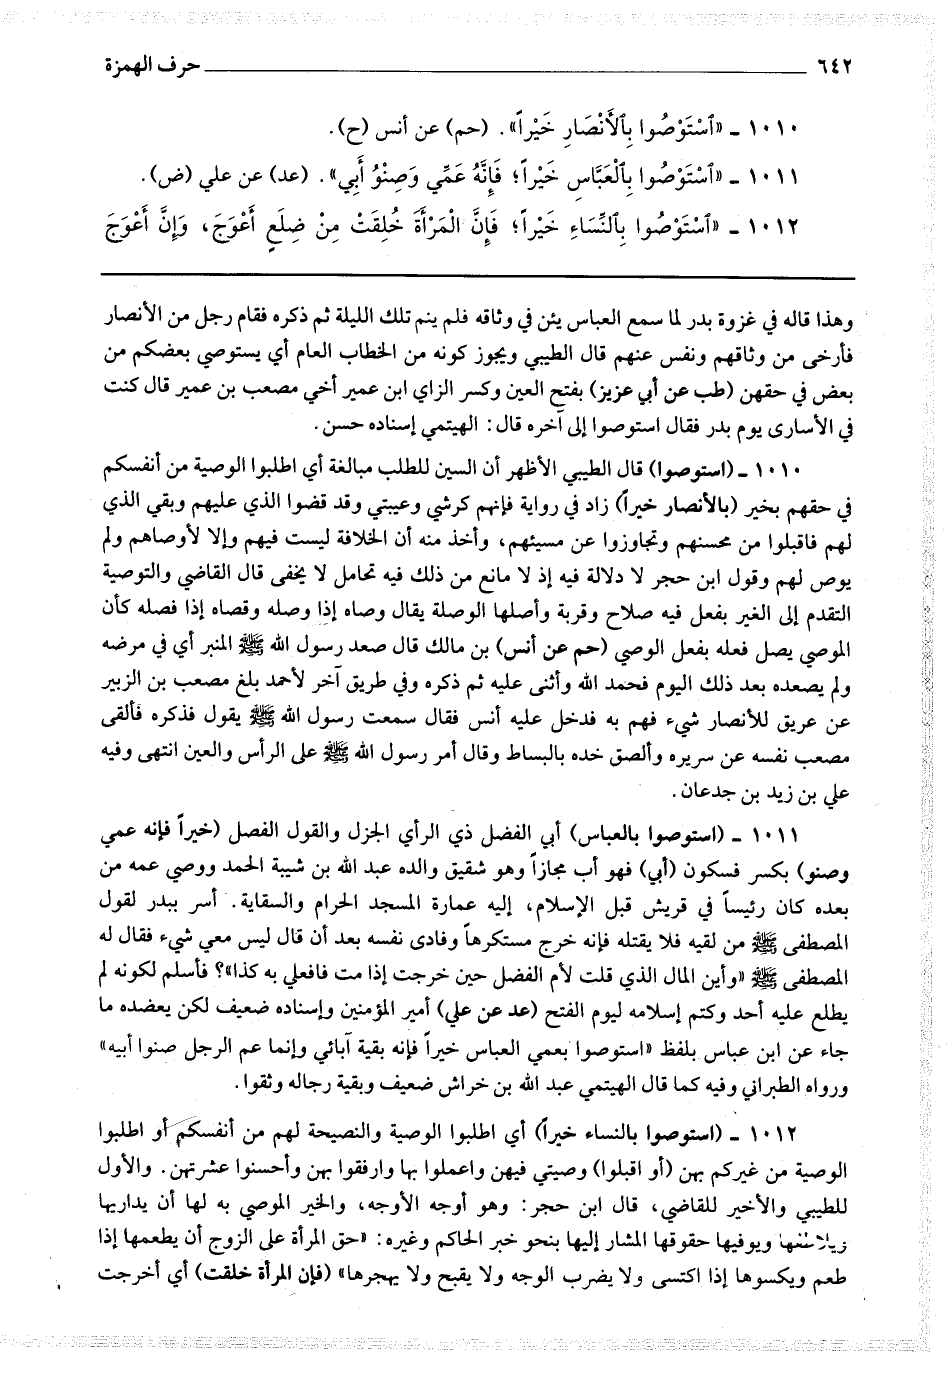 ٦٤٢ ــــــــــ حرف الهمزة
١٠١٠ ـ «ٱسْتَوْصُوا بِٱلأَنْصَارِ خَيْراً». (حم) عن أنس (ح).
١٠١١ ـ «ٱسْتَوْصُوا بِٱلْعَبَّاسِ خَيْراً؛ فَإِنَّهُ عَمِّي وَصِنْوُ أَبِي». (عد) عن علي (ض).
١٠١٢ ـ «ٱسْتَوْصُوا بِٱلنِّسَاءِ خَيْراً؛ فَإِنَّ الْمَرْأَةَ خُلِقَتْ مِنْ ضِلَعٍ أَعْوَجَ، وَإِنَّ أَعْوَجَ
وهذا قاله في غزوة بدر لما سمع العباس يئن في وثاقه فلم ينم تلك الليلة ثم ذكره فقام رجل من الأنصار
فأرخى من وثاقهم ونفس عنهم قال الطيبي ويجوز كونه من الخطاب العام أي يستوصي بعضكم من
بعض في حقهن (طب عن أبي عزيز) بفتح العين وكسر الزاي ابن عمير أخي مصعب بن عمير قال كنت
في الأسارى يوم بدر فقال استوصوا إلى آخره قال: الهيتمي إسناده حسن.
١٠١٠ ـ (استوصوا) قال الطيبي الأظهر أن السين للطلب مبالغة أي اطلبوا الوصية من أنفسكم
في حقهم بخير (بالأنصار خيراً) زاد في رواية فإنهم كرشي وعيبتي وقد قضوا الذي عليهم وبقي الذي
لهم فاقبلوا من محسنهم وتجاوزوا عن مسيئهم، وأخذ منه أن الخلافة ليست فيهم وإلا لأوصاهم ولم
يوص لهم وقول ابن حجر لا دلالة فيه إذ لا مانع من ذلك فيه تحامل لا يخفى قال القاضي والتوصية
التقدم إلى الغير بفعل فيه صلاح وقربة وأصلها الوصلة يقال وصاه إذا وصله وقصاه إذا فصله كأن
الموصي يصل فعله بفعل الوصي (حم عن أنس) بن مالك قال صعد رسول الله ﷺ المنبر أي في مرضه
ولم يصعده بعد ذلك اليوم فحمد الله وأثنى عليه ثم ذكره وفي طريق آخر لأحمد بلغ مصعب بن الزبير
عن عريق للأنصار شيء فهم به فدخل عليه أنس فقال سمعت رسول الله ﷺ يقول فذكره فألقى
مصعب نفسه عن سريره وألصق خده بالبساط وقال أمر رسول الله ﷺ على الرأس والعين انتهى وفيه
علي بن زيد بن جدعان.
١٠١١ ـ (استوصوا بالعباس) أبي الفضل ذي الرأي الجزل والقول الفصل (خيراً فإنه عمي
وصنو) بكسر فسكون (أبي) فهو أب مجازاً وهو شقيق والده عبد الله بن شيبة الحمد ووصي عمه من
بعده كان رئيساً في قريش قبل الإسلام، إليه عمارة المسجد الحرام والسقاية. أسر ببدر لقول
المصطفى ﷺ من لقيه فلا يقتله فإنه خرج مستكرهاً وفادى نفسه بعد أن قال ليس معي شيء فقال له
المصطفى ﷺ «وأين المال الذي قلت لأم الفضل حين خرجت إذا مت فافعلي به كذا»؟ فأسلم لكونه لم
يطلع عليه أحد وكتم إسلامه ليوم الفتح (عد عن علي) أمير المؤمنين وإسناده ضعيف لكن يعضده ما
جاء عن ابن عباس بلفظ «استوصوا بعمي العباس خيراً فإنه بقية آبائي وإنما عم الرجل صنوا أبيه»
ورواه الطبراني وفيه كما قال الهيتمي عبد الله بن خراش ضعيف وبقية رجاله وثقوا.
١٠١٢ ـ (استوصوا بالنساء خيراً) أي اطلبوا الوصية والنصيحة لهم من أنفسكم أو اطلبوا
الوصية من غيركم بهن (أو اقبلوا) وصيتي فيهن واعملوا بها وارفقوا بهن وأحسنوا عشرتهن. والأول
للطيبي والأخير للقاضي، قال ابن حجر: وهو أوجه الأوجه، والخير الموصي به لها أن يداريها
ويوفيها حقوقها المشار إليها بنحو خبر الحاكم وغيره: «حق المرأة على الزوج أن يطعمها إذا
طعم ويكسوها إذا اكتسى ولا يضرب الوجه ولا يقبح ولا يهجرها» (فإن المرأة خلقت) أي أخرجت